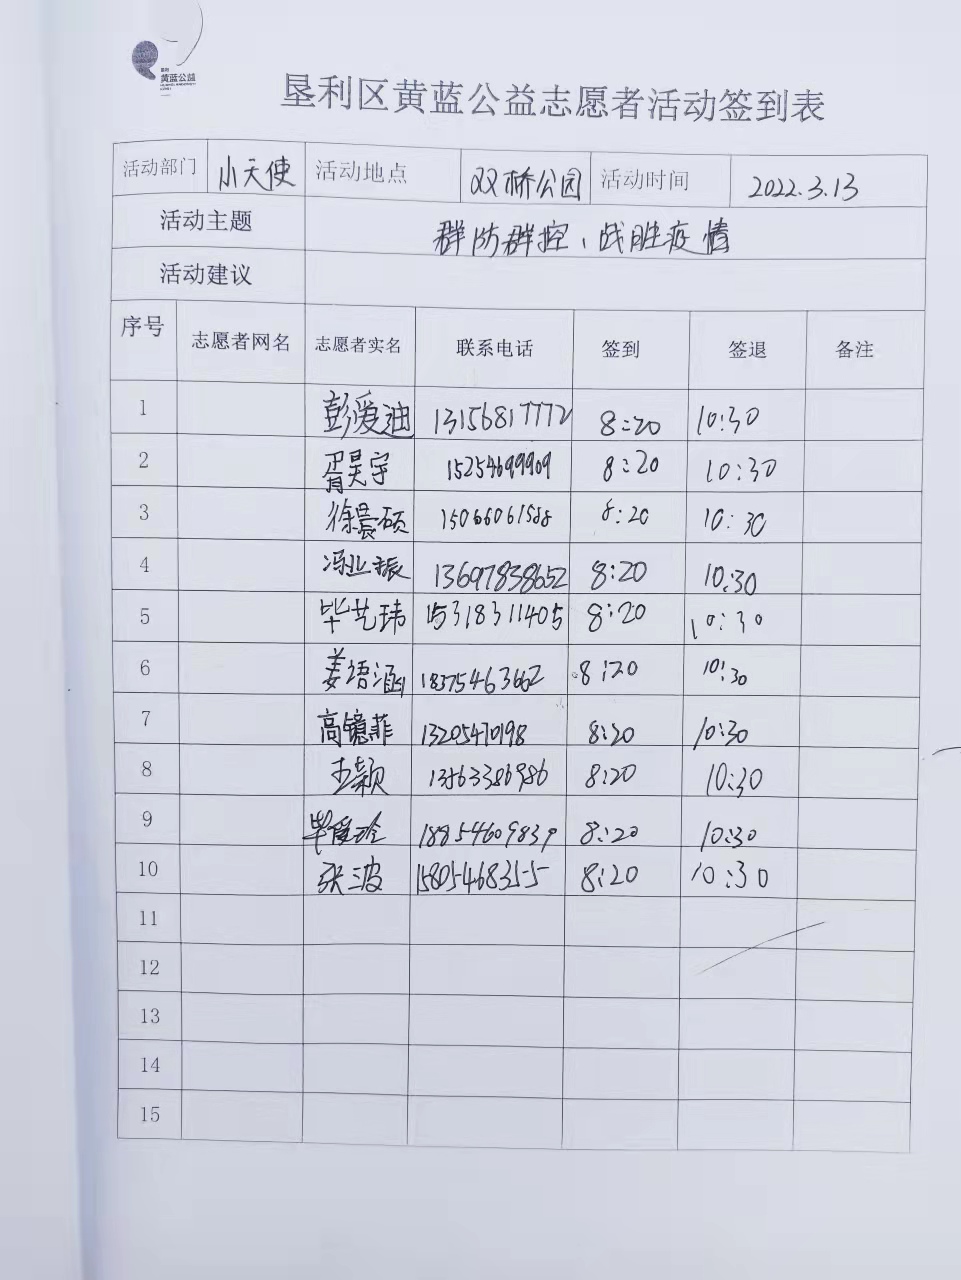 黄蓝公益
垦利区黄蓝公益志愿者活动签到表
活动部门 小天使 活动地点 双桥公园 活动时间 2022.3.13
活动主题 群防群控、战胜疫情
活动建议
序号 志愿者网名 志愿者实名 联系电话 签到 签退 备注
1 彭爱迪 13156817772 8:20 10:30
2 胥昊宇 15254699909 8:20 10:30
3 徐晨硕 15066061588 8:20 10:30
4 冯业振 13697838652 8:20 10:30
5 毕艺玮 15318311405 8:20 10:30
6 姜语涵 18375463662 8:20 10:30
7 高镱菲 13205470198 8:20 10:30
8 王颖 13563386986 8:20 10:30
9 毕爱玲 18854609839 8:20 10:30
10 张三波 15805468355 8:20 10:30
11
12
13
14
15